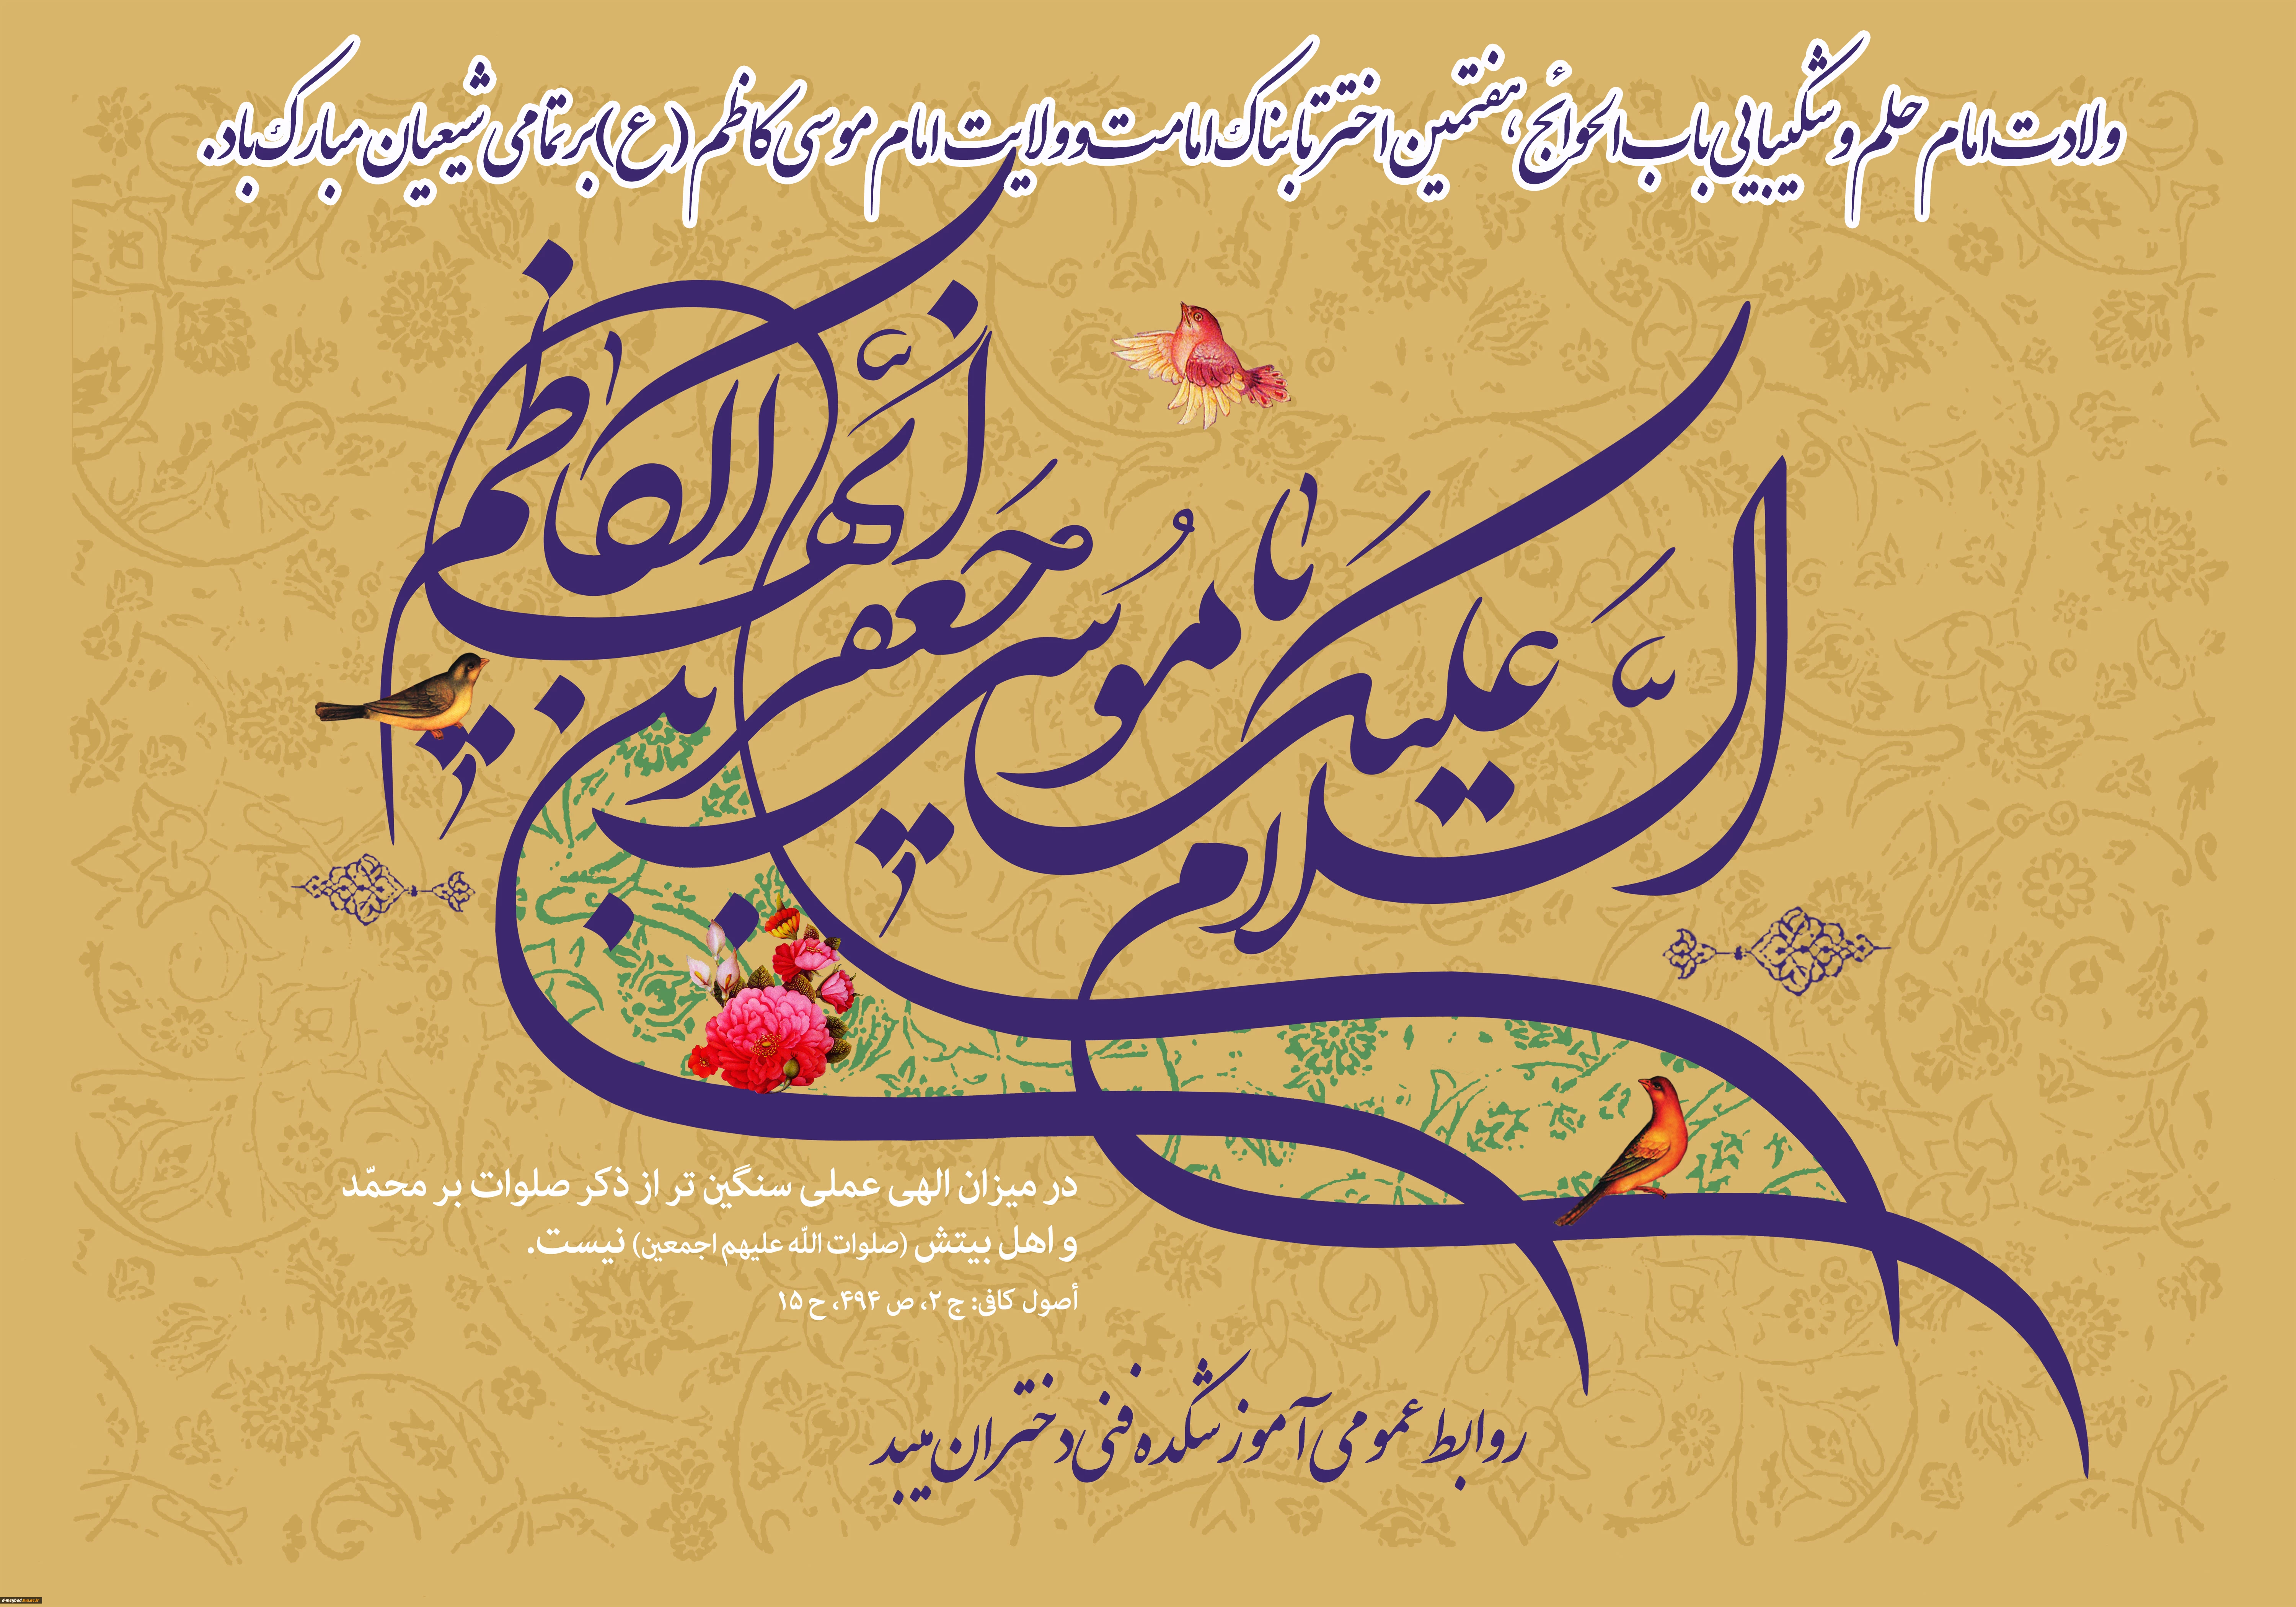 ولادت امام حلم و شکیبایی باب الحوائج، هفتمین اختر تابناک امامت و ولایت امام موسی کاظم (ع) بر تمامی شیعیان مبارک باد.
السَّلام علیکَ یا مُوسی بن جَعفر أیُّها الکاظم
در میزان الهی عملی سنگین تر از ذکر صلوات بر محمّد
و اهل بیتش (صلوات اللّه علیهم اجمعین) نیست.
أصول کافی: ج ۲، ص ۴۹۴، ح ۱۵
روابط عمومی آموزشکده فنی دختران میبد